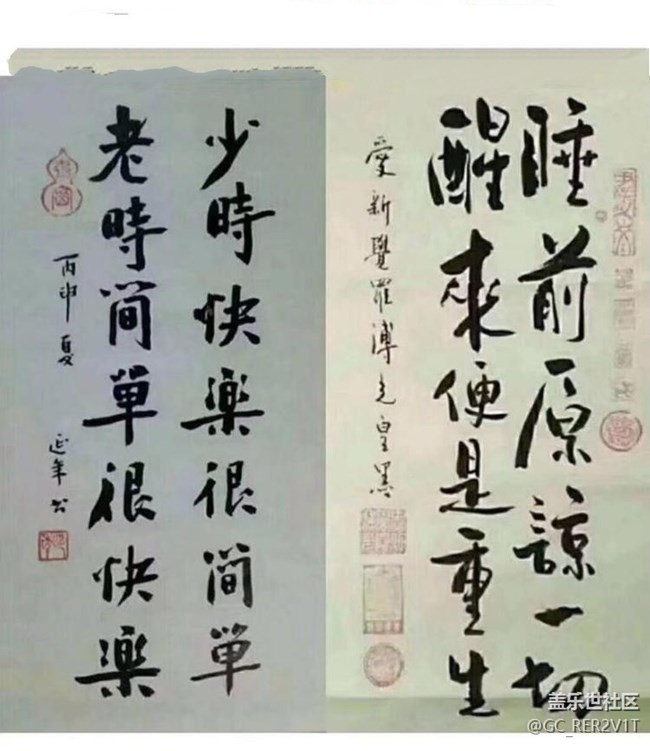 睡前原諒一切
醒來便是重生
愛新覺羅溥
少時快樂很簡單
老時簡單很快樂
丙申夏
延年
盖乐世社区
@GC_RER2V1T